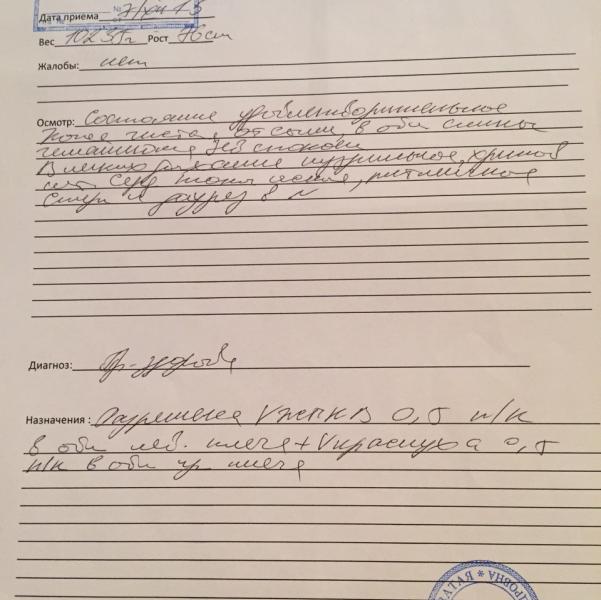 Дата приема 7/XII 15
Вес 10235г Рост 76см
Жалобы: нет
Осмотр: Состояние удовлетворительное
кожа чиста, в обл спины
гемангиома зев спокоен
В легких дыхание пуэрильное, хрипов
нет Серд тоны ясные, ритмичные
Стул и диурез в N
Диагноз: Пр-здорова
Назначения : Разрешена V ЖПКВ 0,5 п/к
в обл лев. плеча + V краснуха 0,5
п/к в обл пр плеча